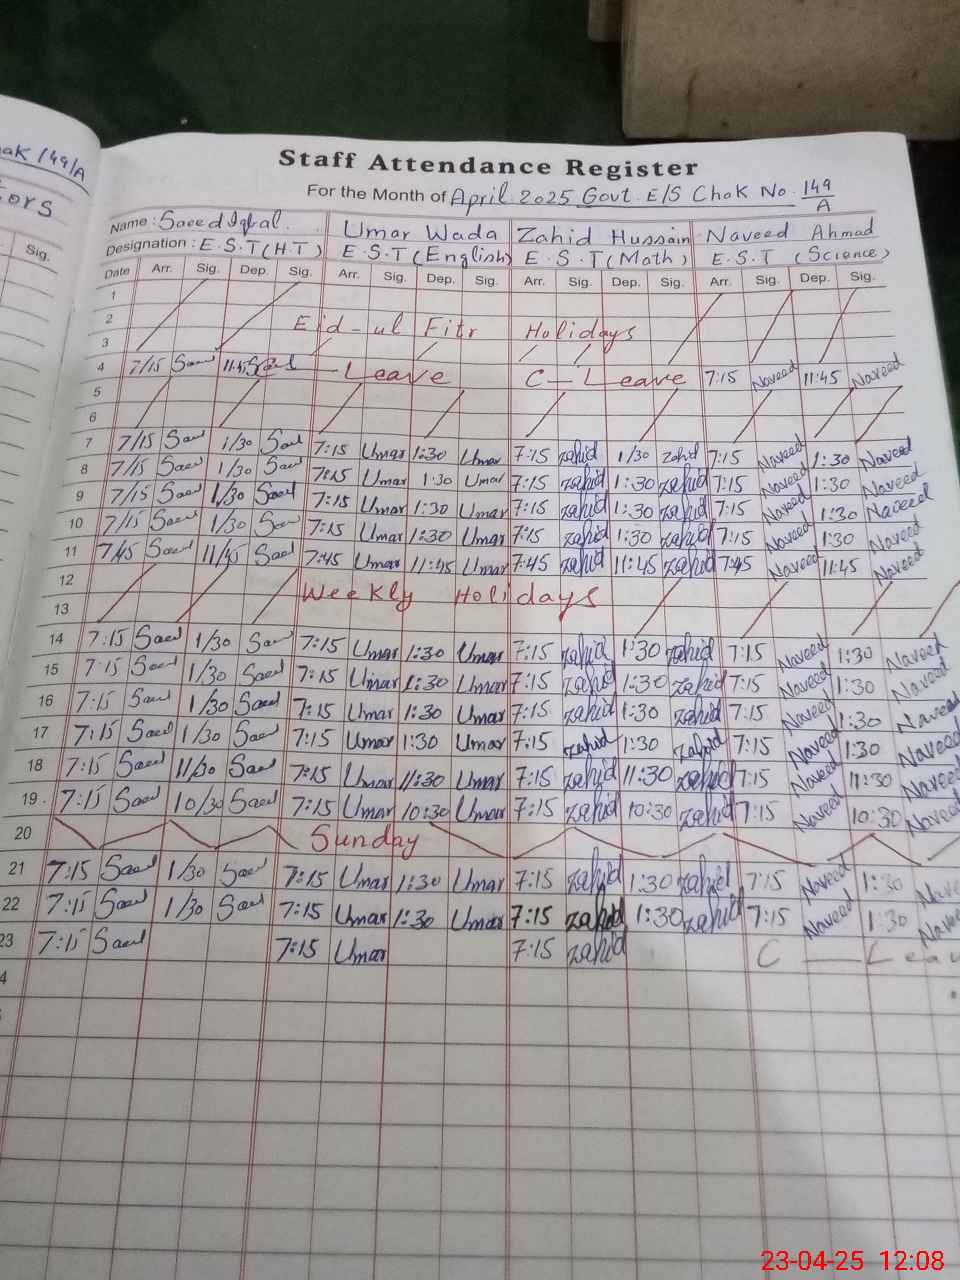 ak 149/A
tors
Sig.
Staff Attendance Register
For the Month of April 2025 Govt. E/S Chak No. 149/A
Name: Saeed Iqbal. Umar Wada Zahid Hussain Naveed Ahmad
Designation: E.S.T (H.T) E.S.T (English) E.S.T (Math) E.S.T (Science)
Date Arr. Sig. Dep. Sig. Arr. Sig. Dep. Sig. Arr. Sig. Dep. Sig. Arr. Sig. Dep. Sig.
1
2 Eid-ul Fitr Holidays
3
4 7/15 Saed 11:45 Saed — Leave C — Leave 7:15 Naveed 11:45 Naveed
5
6
7 7/15 Saed 1/30 Saed 7:15 Umar 1:30 Umar 7:15 zahid 1/30 zahid 7:15 Naveed 1:30 Naveed
8 7/15 Saed 1/30 Saed 7:15 Umar 1:30 Umar 7:15 zahid 1:30 zahid 7:15 Naveed 1:30 Naveed
9 7/15 Saed 1/30 Saed 7:15 Umar 1:30 Umar 7:15 zahid 1:30 zahid 7:15 Naveed 1:30 Naveed
10 7/15 Saed 1/30 Saed 7:15 Umar 1:30 Umar 7:15 zahid 1:30 zahid 7:15 Naveed 1:30 Naveed
11 7/45 Saed 11/45 Saed 7:45 Umar 11:45 Umar 7:45 zahid 11:45 zahid 7:45 Naveed 11:45 Naveed
12 Weekly Holidays
13
14 7:15 Saed 1/30 Saed 7:15 Umar 1:30 Umar 7:15 zahid 1:30 zahid 7:15 Naveed 1:30 Naveed
15 7:15 Saed 1/30 Saed 7:15 Umar 1:30 Umar 7:15 zahid 1:30 zahid 7:15 Naveed 1:30 Naveed
16 7:15 Saed 1/30 Saed 7:15 Umar 1:30 Umar 7:15 zahid 1:30 zahid 7:15 Naveed 1:30 Naveed
17 7:15 Saed 1/30 Saed 7:15 Umar 1:30 Umar 7:15 zahid 1:30 zahid 7:15 Naveed 1:30 Naveed
18 7:15 Saed 11/30 Saed 7:15 Umar 11:30 Umar 7:15 zahid 11:30 zahid 7:15 Naveed 11:30 Naveed
19 7:15 Saed 10/30 Saed 7:15 Umar 10:30 Umar 7:15 zahid 10:30 zahid 7:15 Naveed 10:30 Naveed
20 Sunday
21 7:15 Saed 1/30 Saed 7:15 Umar 1:30 Umar 7:15 zahid 1:30 zahid 7:15 Naveed 1:30 Nave
22 7:15 Saed 1/30 Saed 7:15 Umar 1:30 Umar 7:15 zahid 1:30 zahid 7:15 Naveed 1:30 Nave
23 7:15 Saed 7:15 Umar 7:15 zahid C — Leav
4
23-04-25 12:08